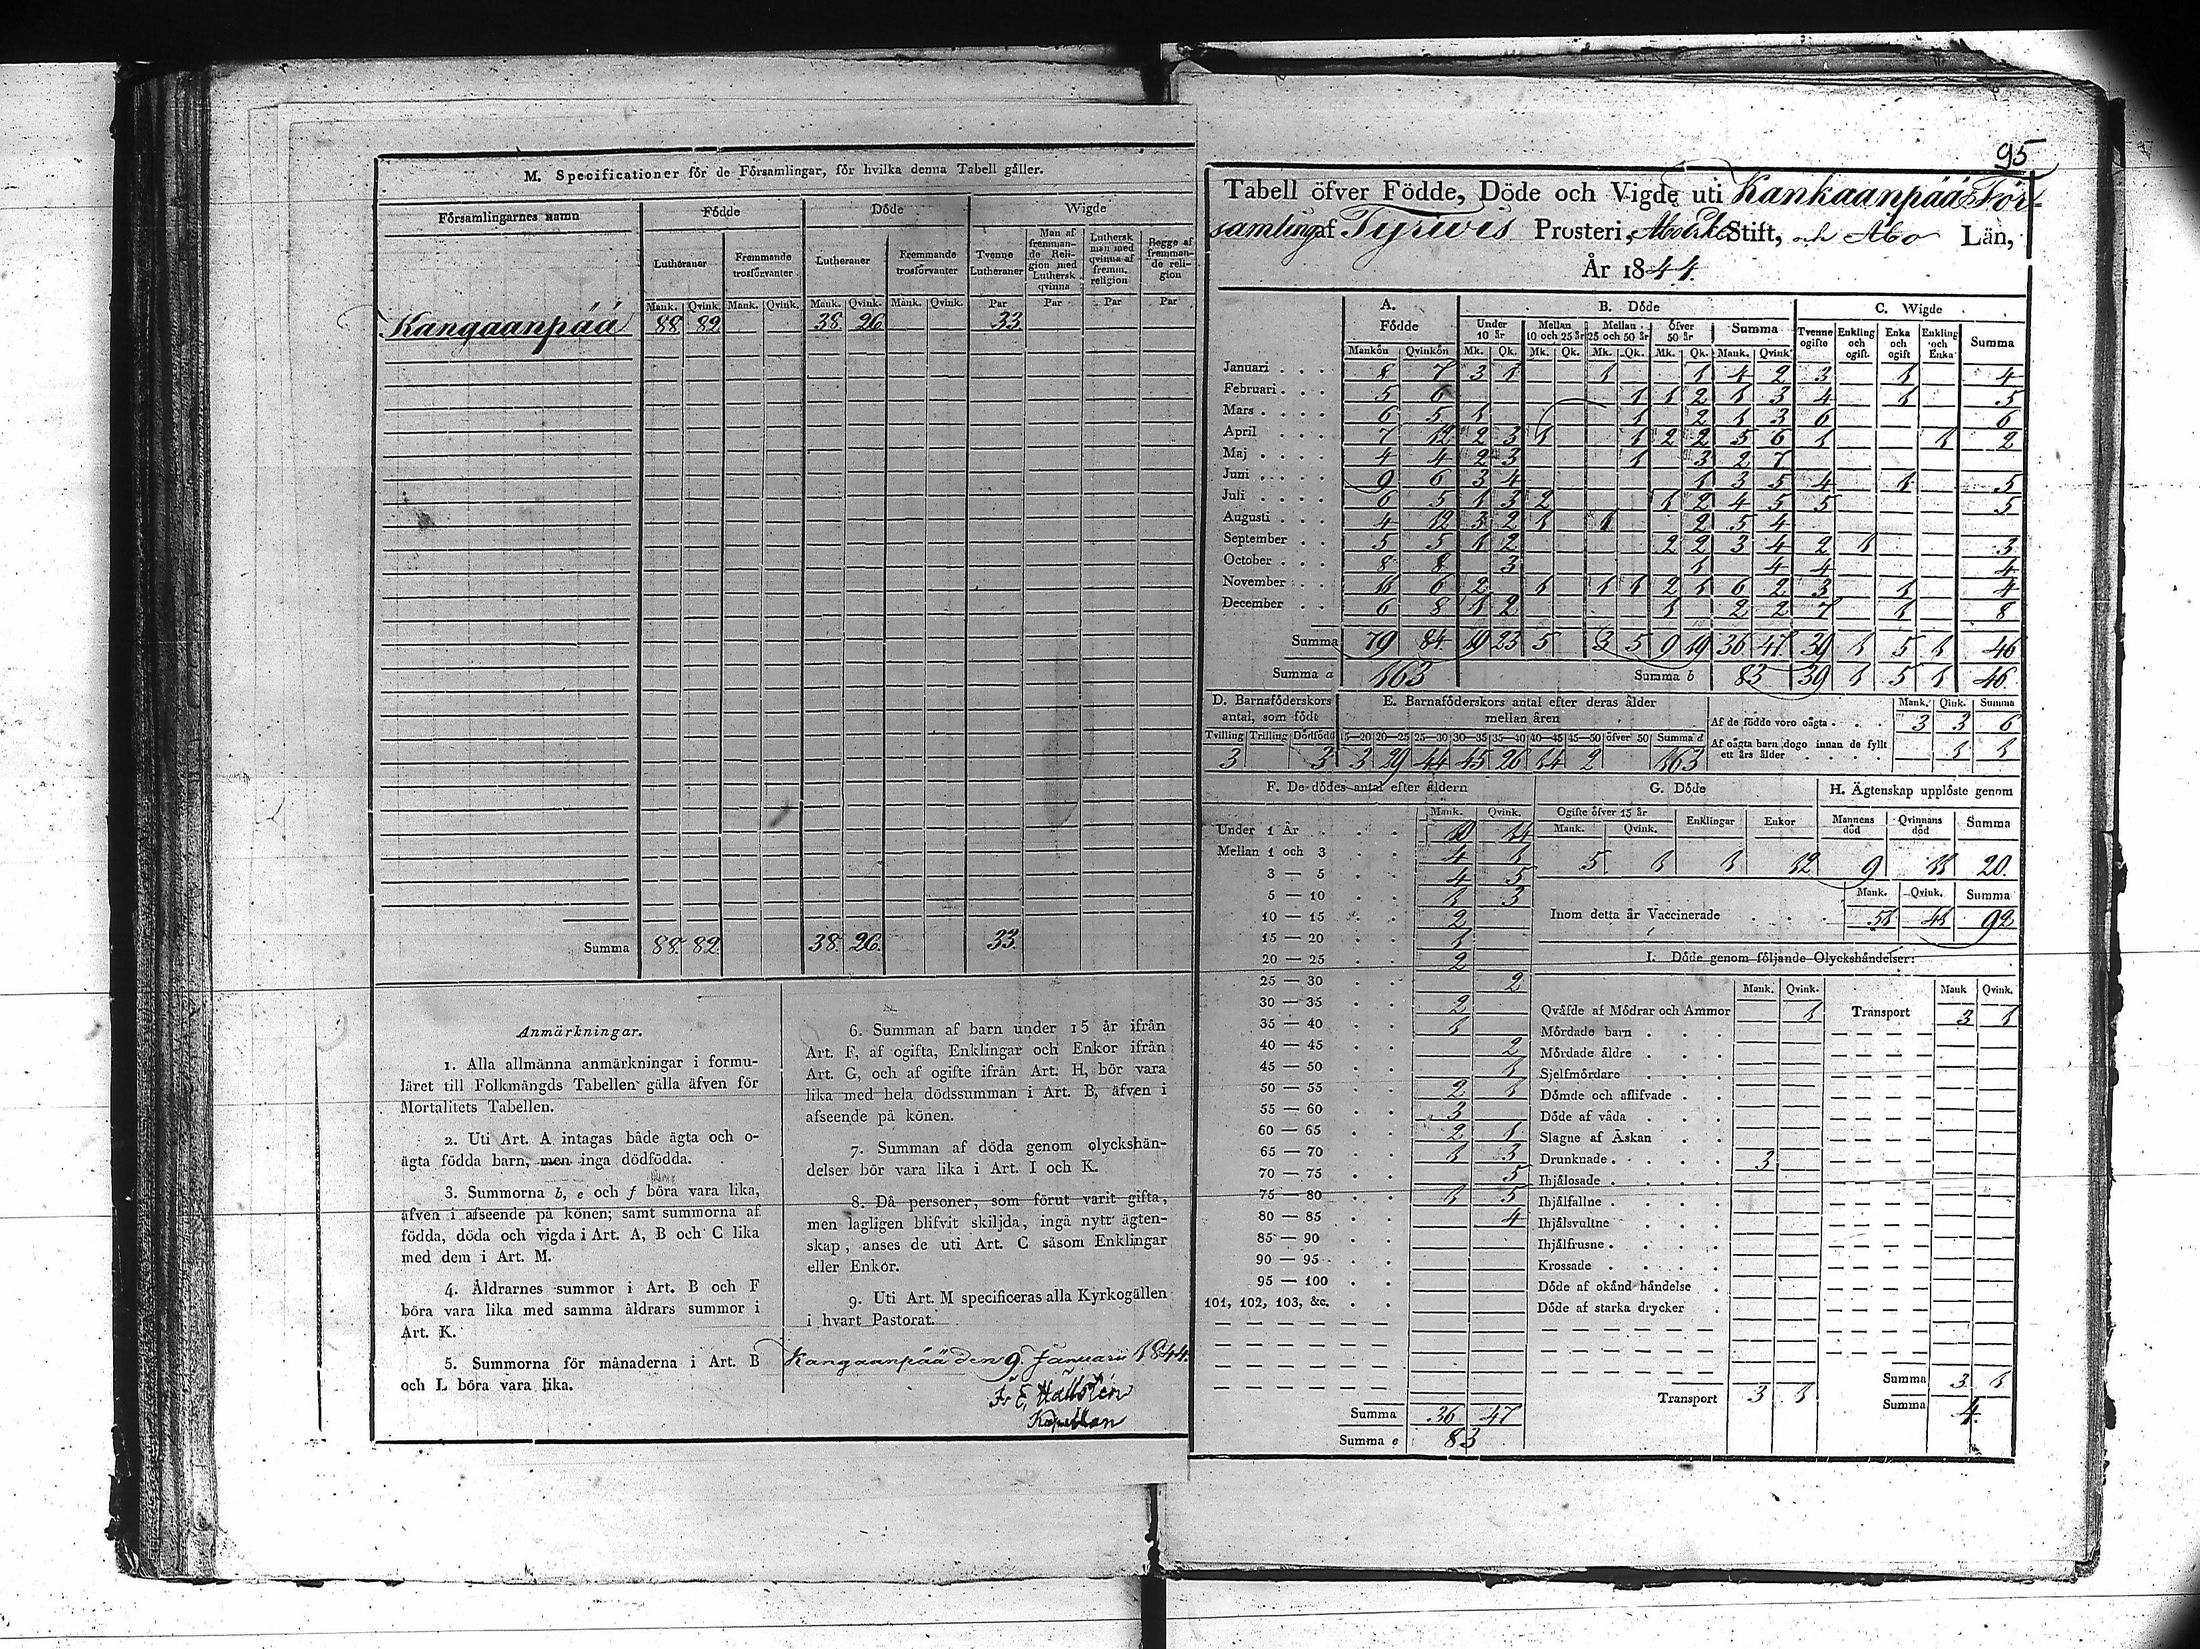 M. Specificationer för de Församlingar, för hvilka denna Tabell gäller.
Församlingarnes namn Födde Döde Wigde
Lutheraner Fremmande trosförvanter Lutheraner Fremmande trosförvanter Tvenne Lutheraner Man af fremmande Religion med Luthersk qvinna Luthersk man med qvinna af fremm. religion Begge af fremmande religion
Mank. Qvink. Mank. Qvink. Mank. Qvink. Mank. Qvink. Par Par Par Par
Kangaanpää 88 82 38 26 33
Summa 88. 82. 38. 26. 33.
Anmärkningar.
1. Alla allmänna anmärkningar i formu-
läret till Folkmängds Tabellen gälla äfven för
Mortalitets Tabellen.
2. Uti Art. A intagas både ägta och o-
ägta födda barn, men inga dödfödda.
3. Summorna b, e och f böra vara lika,
äfven i afseende på könen; samt summorna af
födda, döda och vigda i Art. A, B och C lika
med dem i Art. M.
4. Åldrarnes summor i Art. B och F
böra vara lika med samma åldrars summor i
Art. K.
5. Summorna för månaderna i Art. B
och L böra vara lika.
6. Summan af barn under 15 år ifrån
Art. F, af ogifta, Enklingar och Enkor ifrån
Art. G, och af ogifte ifrån Art. H, bör vara
lika med hela dödssumman i Art. B, äfven i
afseende på könen.
7. Summan af döda genom olyckshän-
delser bör vara lika i Art. I och K.
8. Då personer, som förut varit gifta,
men lagligen blifvit skiljda, ingå nytt ägten-
skap, anses de uti Art. C såsom Enklingar
eller Enkor.
9. Uti Art. M specificeras alla Kyrkogällen
i hvart Pastorat.
Kangaanpää den 9. Januarii 1844.
F. E. Hällsten
Kapellan
95
Tabell öfver Födde, Döde och Vigde uti Kankaanpää För-
samling af Tyrwis Prosteri, Stift, och Åbo Län,
År 1844.
A. Födde B. Döde C. Wigde
Under 10 år Mellan 10 och 25 år Mellan 25 och 50 år Öfver 50 år Summa Tvenne ogifte Enkling och ogift. Enka och ogift Enkling och Enka Summa
Mankön Qvinkön Mk. Qk. Mk. Qk. Mk. Qk. Mk. Qk. Mank. Qvink.
Januari 8 7 3 1 1 1 4 2 3 1 4
Februari 5 6 1 1 2 1 3 4 1 5
Mars 6 5 1 1 2 1 3 6 6
April 7 12 2 3 1 1 2 2 5 6 1 1 2
Maj 4 4 2 3 1 3 2 7
Juni 9 6 3 4 1 3 5 4 1 5
Juli 6 5 1 3 2 1 2 4 5 5 5
Augusti 4 12 3 2 1 1 2 5 4
September 5 5 1 2 2 2 3 4 2 1 3
October 8 8 3 1 4 4 4
November 11 6 2 1 1 1 2 1 6 2 3 1 4
December 6 8 1 2 1 2 2 7 1 8
Summa 79 84 19 23 5 3 5 9 19 36 47 39 1 5 1 46
Summa a 163 Summa b 83 39 1 5 1 46.
D. Barnaföderskors antal, som födt E. Barnaföderskors antal efter deras ålder mellan åren
Mank. Qink. Summa
Af de födde voro oägta 3 3 6
Tvilling Trilling Dödfödd 15—20 20—25 25—30 30—35 35—40 40—45 45—50 öfver 50 Summa d
3 3 3 29 44 45 26 14 2 163
Af oägta barn dogo innan de fyllt ett års ålder 1 1
F. De dödes antal efter åldern
Mank. Qvink.
Under 1 År 10 14
Mellan 1 och 3 4 1
3 — 5 4 5
5 — 10 1 3
10 — 15 2
15 — 20 1
20 — 25 2
25 — 30 2
30 — 35 2
35 — 40 1
40 — 45 2
45 — 50 1
50 — 55 2 1
55 — 60 3
60 — 65 2 1
65 — 70 1 3
70 — 75 5
75 — 80 1 5
80 — 85 4
85 — 90
90 — 95
95 — 100
101, 102, 103, &c.
Summa 36 47
Summa e 83
G. Döde H. Ägtenskap upplöste genom
Ogifte öfver 15 år Enklingar Enkor Mannens död Qvinnans död Summa
Mank. Qvink.
5 1 1 12 9 11 20.
Mank. Qvink. Summa
Inom detta år Vaccinerade 51 41 92
I. Döde genom följande Olyckshändelser:
Mank. Qvink. Mank Qvink.
Qväfde af Mödrar och Ammor 1 Transport 3 1
Mördade barn
Mördade äldre
Sjelfmördare
Dömde och aflifvade
Döde af våda
Slagne af Åskan
Drunknade 3
Ihjälosade
Ihjälfallne
Ihjälsvultne
Ihjälfrusne
Krossade
Döde af okänd händelse
Döde af starka drycker
Transport 3 1
Summa 3 1
Summa 4.